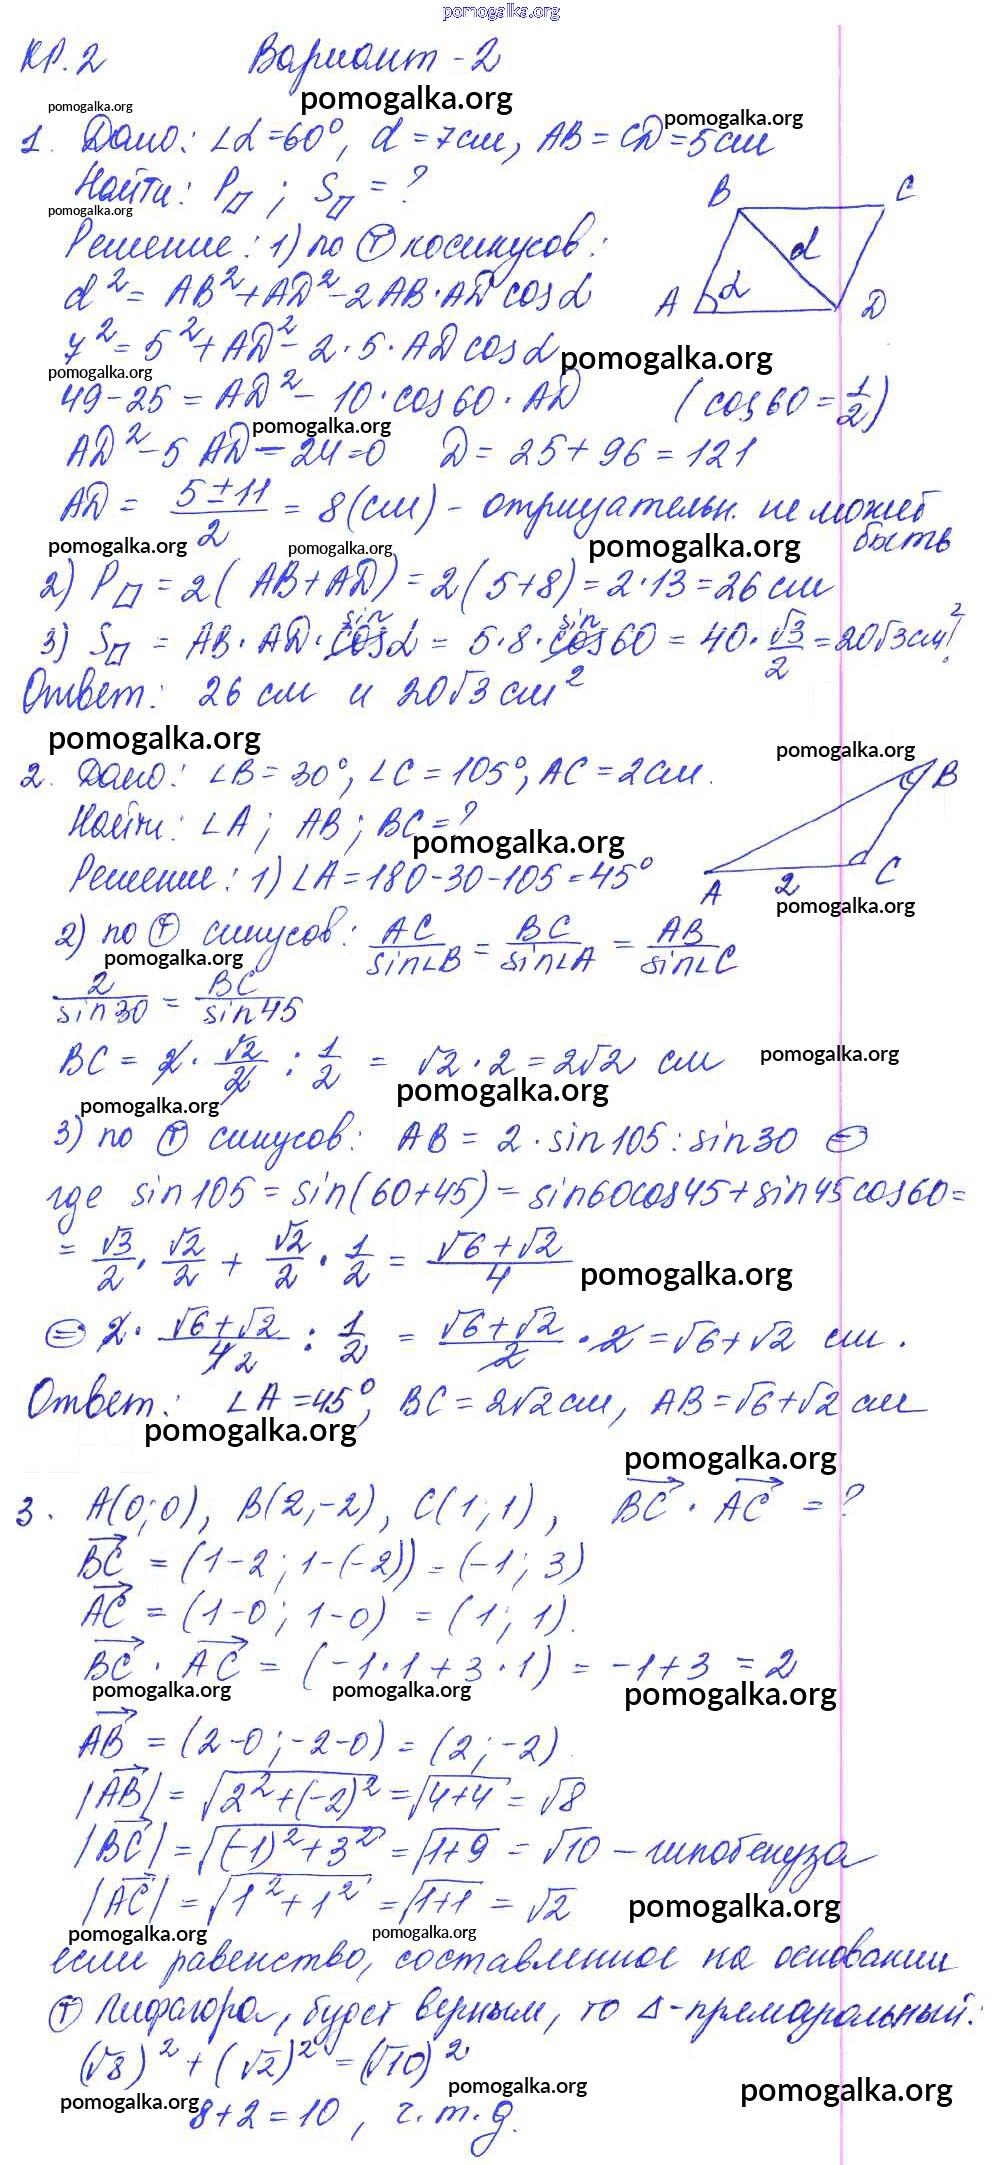 pomogalka.org
КР.2 Вариант - 2
pomogalka.org pomogalka.org
pomogalka.org
1. Дано: ∠α=60°, d = 7см, AB = CD = 5см
Найти: P▱ ; S▱ = ?
pomogalka.org
B C
Решение: 1) по Ⓣ косинусов:
d
d² = AB² + AD² - 2AB·AD cosα
A α D
7² = 5² + AD² - 2·5·AD cosα
pomogalka.org pomogalka.org
49-25 = AD² - 10·cos60·AD (cos60 = 1/2)
pomogalka.org
AD² - 5AD - 24 = 0 D = 25 + 96 = 121
AD = (5±11)/2 = 8(см) - отрицательн. не может быть
pomogalka.org pomogalka.org pomogalka.org
2) P▱ = 2(AB+AD) = 2(5+8) = 2·13 = 26 см
sin sin
3) S▱ = AB·AD·cosα = 5·8·cos60 = 40·√3/2 = 20√3см².
Ответ: 26 см и 20√3 см²
pomogalka.org pomogalka.org
2. Дано: ∠B = 30°, ∠C = 105°, AC = 2см.
B
Найти: ∠A ; AB ; BC = ?
pomogalka.org
Решение: 1) ∠A = 180-30-105 = 45°
A 2 C
pomogalka.org
2) по Ⓣ синусов: AC/sin∠B = BC/sin∠A = AB/sin∠C
pomogalka.org
2/sin30 = BC/sin45
BC = 2·√2/2 : 1/2 = √2·2 = 2√2 см
pomogalka.org
pomogalka.org
pomogalka.org
3) по Ⓣ синусов: AB = 2·sin105 : sin30 ⊜
где sin105 = sin(60+45) = sin60cos45 + sin45cos60 =
= √3/2 · √2/2 + √2/2 · 1/2 = (√6+√2)/4
pomogalka.org
⊜ 2·(√6+√2)/4 2 : 1/2 = (√6+√2)/2 · 2 = √6+√2 см.
Ответ: ∠A = 45°, BC = 2√2см, AB = √6+√2 см
pomogalka.org
pomogalka.org
3. A(0;0), B(2;-2), C(1;1), BC · AC = ?
BC = (1-2; 1-(-2)) = (-1; 3)
AC = (1-0; 1-0) = (1; 1).
BC · AC = (-1·1 + 3·1) = -1+3 = 2
pomogalka.org pomogalka.org pomogalka.org
AB = (2-0; -2-0) = (2; -2).
|AB| = √(2²+(-2)²) = √(4+4) = √8
|BC| = √((-1)²+3²) = √(1+9) = √10 - гипотенуза
|AC| = √(1²+1²) = √(1+1) = √2
pomogalka.org
pomogalka.org pomogalka.org
если равенство, составленное на основании
Ⓣ Пифагора, будет верным, то Δ-прямоугольный:
(√8)² + (√2)² = (√10)²
pomogalka.org pomogalka.org pomogalka.org
8+2 = 10, ч.т.д.